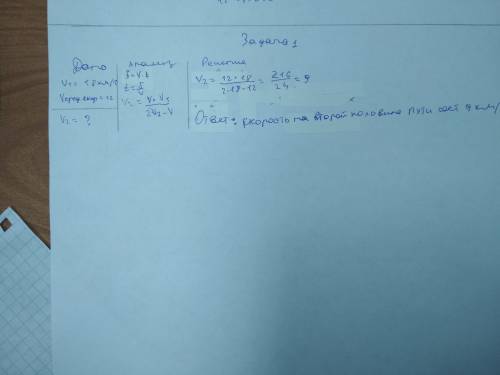 Задача 1
Дано
V₁ = 18 км/ч
Vсред.скор = 12
V₂ = ?
Анализ
S = V·t
t = S/V
V₂ = V·V₁/2V₁-V
Решение
V₂ = 12·18/2·18-12 = 216/24 = 9
Ответ: скорость на второй половине пути 9 км/